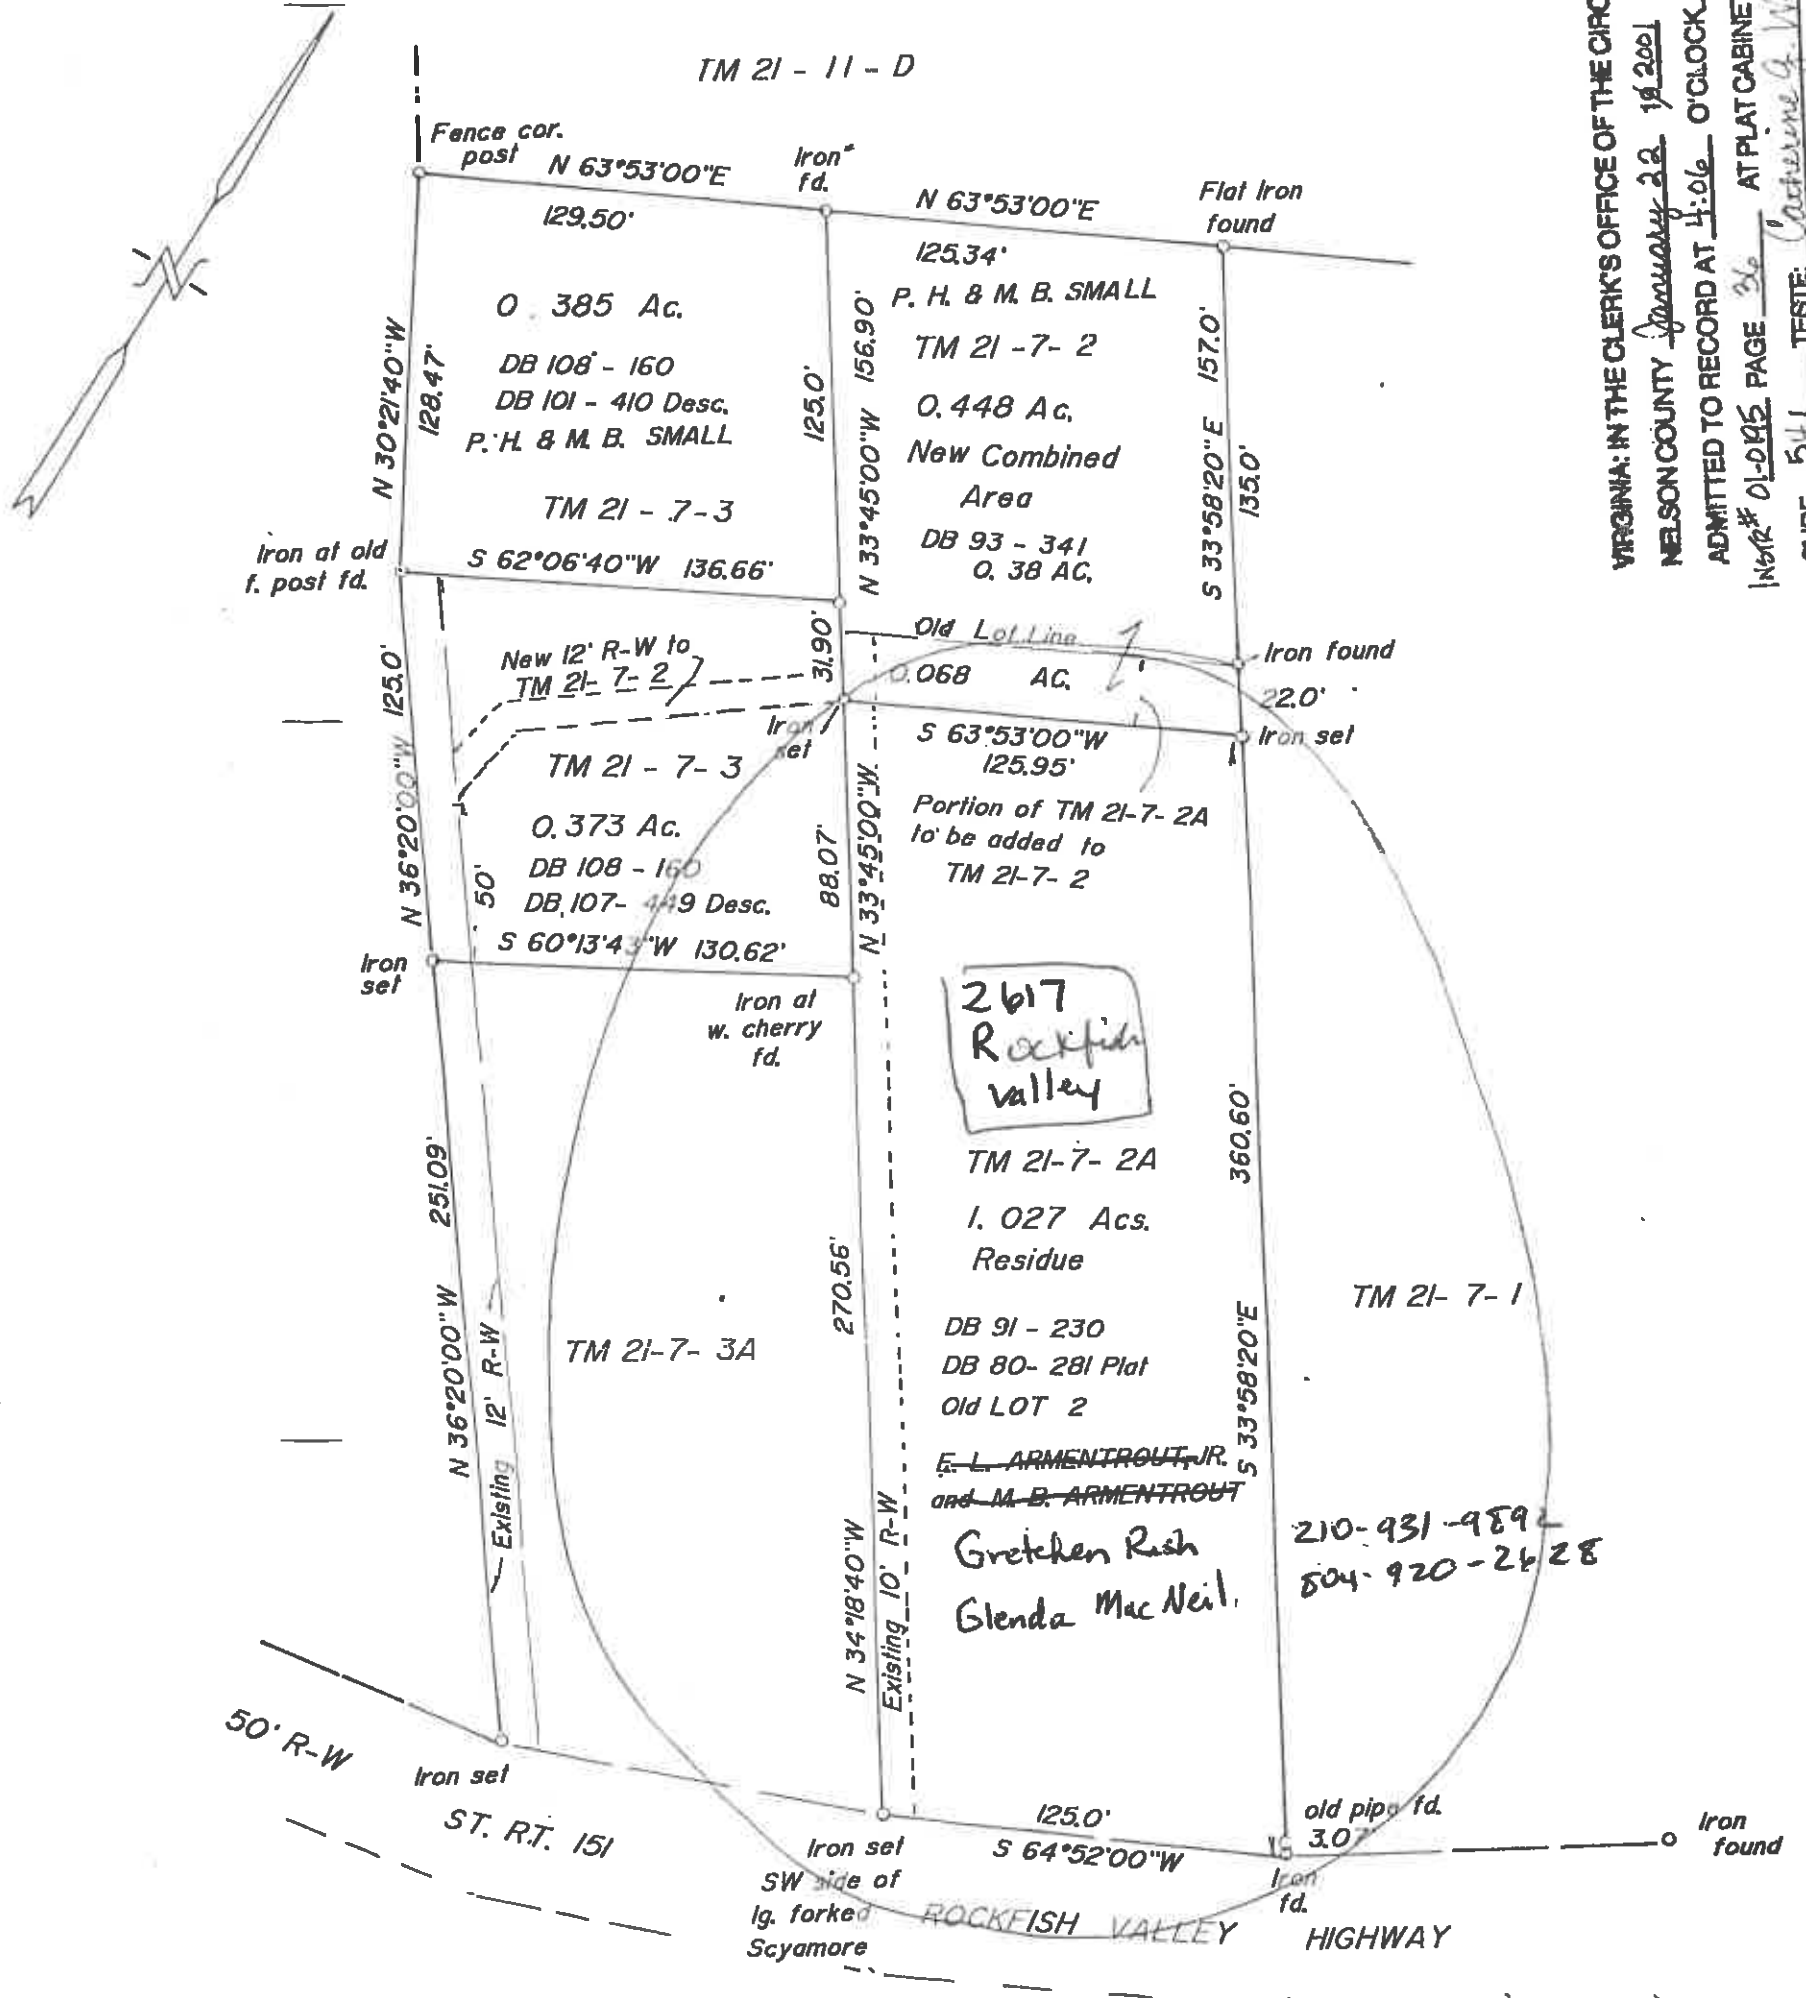 TM 21 - 11 - D
Fence cor.
post
N 63°53'00"E
129.50'
Iron
fd.
N 63°53'00"E
125.34'
Flat Iron
found
0.385 Ac.
DB 108 - 160
DB 101 - 410 Desc.
P. H. & M. B. SMALL
TM 21 - 7-3
N 30°21'40"W
128.47'
125.0'
N 33°45'00"W 156.90'
P. H. & M. B. SMALL
TM 21 -7- 2
0.448 Ac.
New Combined
Area
DB 93 - 341
0.38 AC.
S 33°58'20"E 157.0'
135.0'
Iron at old
f. post fd.
S 62°06'40"W 136.66'
New 12' R-W to
TM 21- 7- 2
31.90'
Old Lot Line
0.068 AC.
Iron found
22.0'
Iron set
S 63°53'00"W
125.95'
Iron
set
Portion of TM 21-7-2A
to be added to
TM 21-7-2
N 36°20'00"W 125.0'
50'
TM 21 - 7- 3
0.373 Ac.
DB 108 - 160
DB 107- 449 Desc.
S 60°13'43"W 130.62'
88.07'
N 33°45'00"W
Iron
set
Iron at
w. cherry
fd.
2617
Rockfish
valley
TM 21-7- 2A
1.027 Acs.
Residue
DB 91 - 230
DB 80- 281 Plat
Old LOT 2
E. L. ARMENTROUT, JR.
and M. B. ARMENTROUT
Gretchen Rush
Glenda MacNeil.
360.60'
S 33°58'20"E
TM 21- 7- 1
210-931-989
504-920-2628
251.09'
N 36°20'00"W
Existing 12' R-W
TM 21-7- 3A
270.56'
N 34°18'40"W
Existing 10' R-W
50' R-W
Iron set
ST. RT. 151
Iron set
SW side of
lg. forked
Scyamore
125.0'
S 64°52'00"W
old pipe fd.
3.07'
Iron
fd.
Iron
found
ROCKFISH VALLEY HIGHWAY
VIRGINIA: IN THE CLERK'S OFFICE OF THE CIRC
NELSON COUNTY January 22 19 2001
ADMITTED TO RECORD AT 4:06 O'CLOCK
INSTR# 01-0195 PAGE 36 AT PLAT CABINE
SLIDE 541 TESTE: Catherine G. W